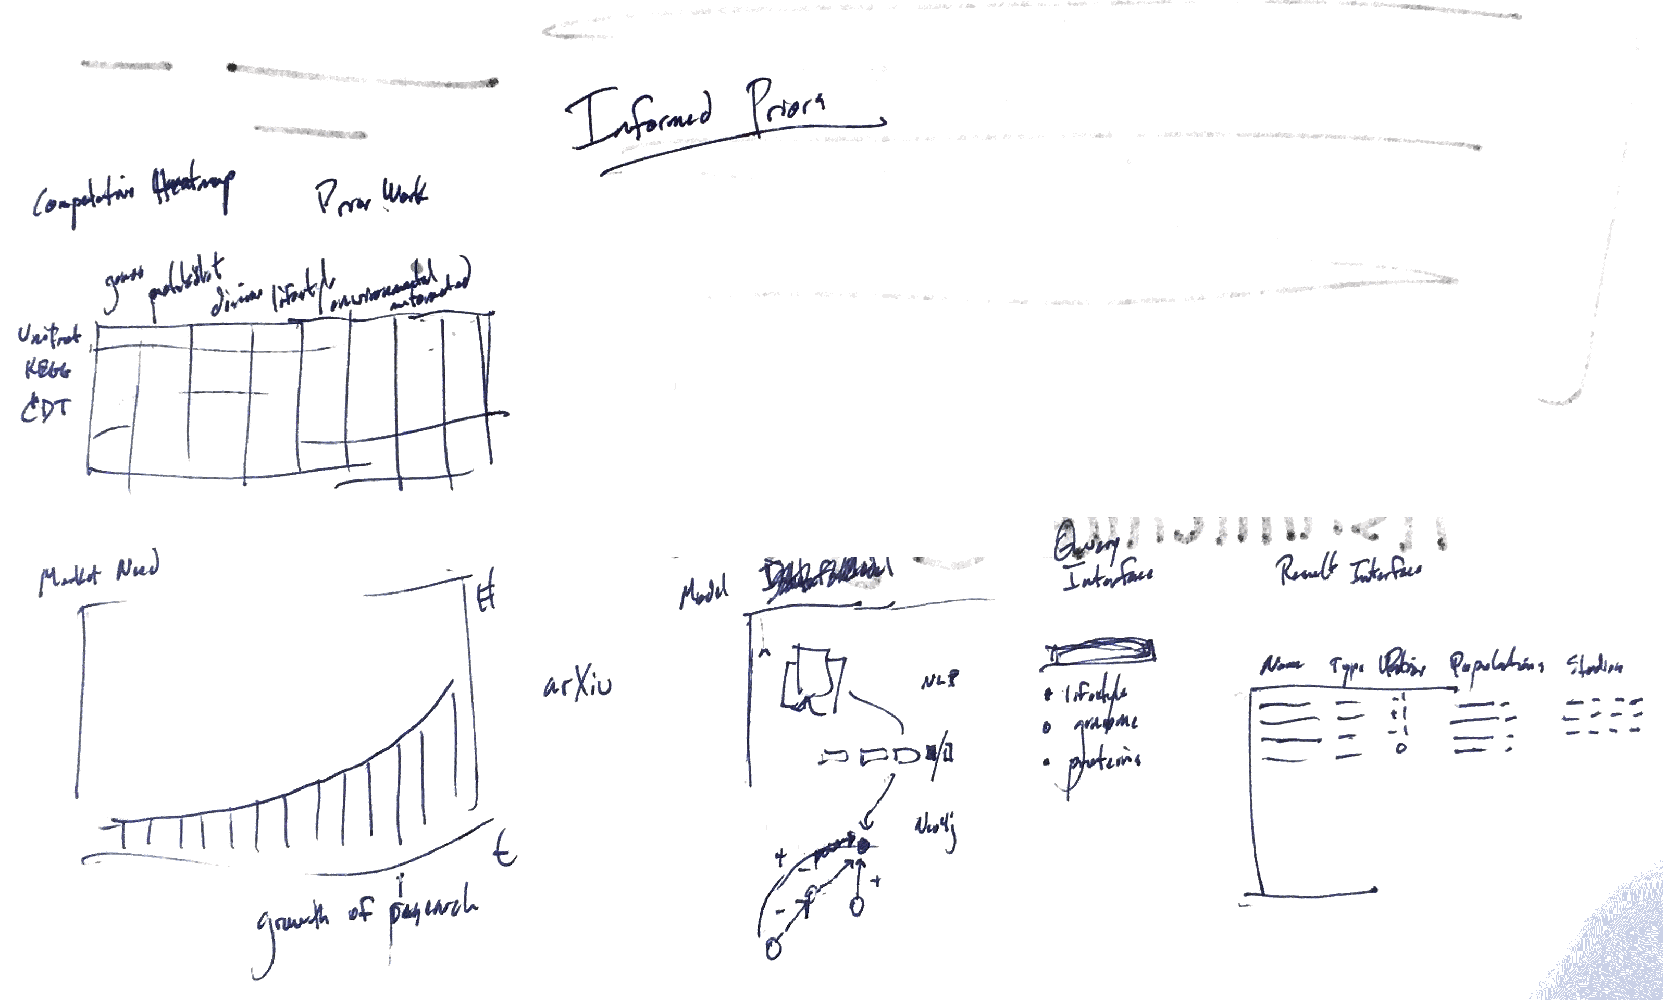 Informed Priors
Competative Heatmap
Prior Work
genes
metabolist
disease
lifestyle
environmental
automated
UniProt
KEGG
CDT
Market Need
#
t
growth of research
arXiv
Model
NLP
Neo4j
+
-
-
+
Query
Interface
lifestyle
genome
proteins
Result Interface
Name Type Populations Studies
-1
+1
-1
0